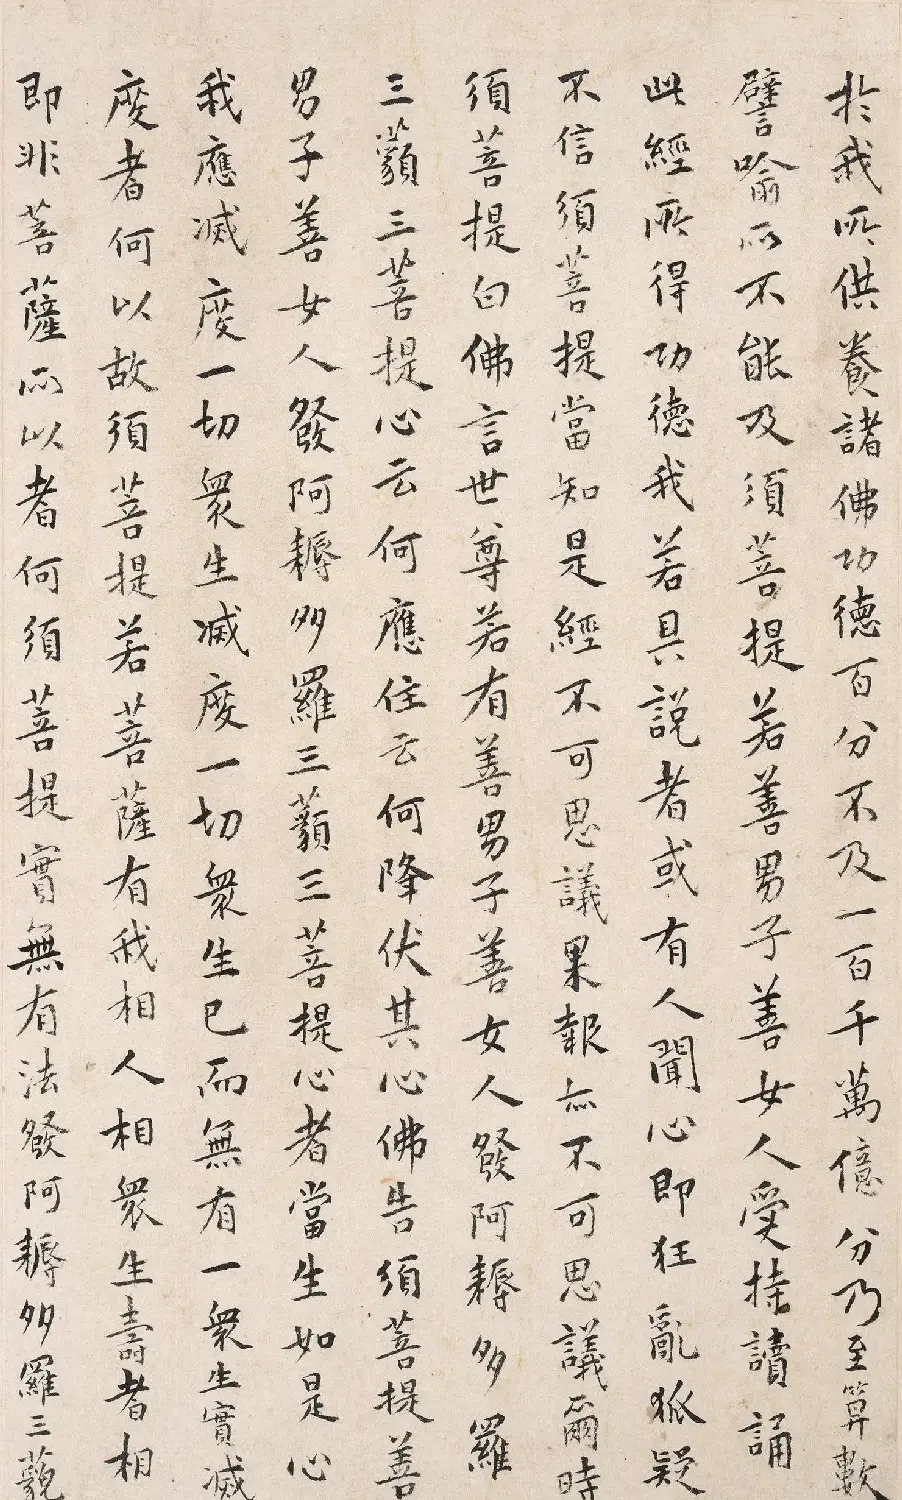 於我所供養諸佛功德百分不及一百千萬億分乃至算數
譬喻所不能及須菩提若善男子善女人受持讀誦
此經所得功德我若具說者或有人聞心即狂亂狐疑
不信須菩提當知是經不可思議果報亦不可思議爾時
須菩提白佛言世尊若有善男子善女人發阿耨多羅
三藐三菩提心云何應住云何降伏其心佛告須菩提善
男子善女人發阿耨多羅三藐三菩提心者當生如是心
我應滅度一切衆生滅度一切衆生已而無有一衆生實滅
度者何以故須菩提若菩薩有我相人相衆生壽者相
即非菩薩所以者何須菩提實無有法發阿耨多羅三藐